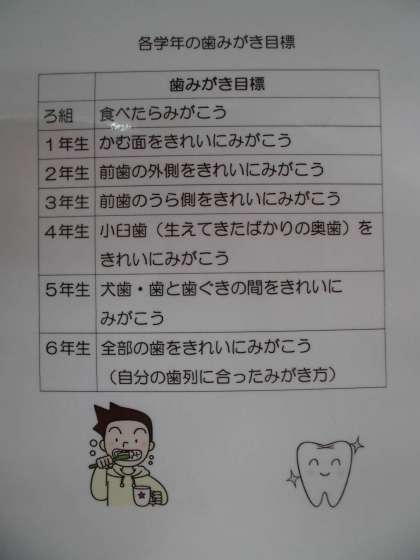 各学年の歯みがき目標
歯みがき目標
ろ組 食べたらみがこう
1年生 かむ面をきれいにみがこう
2年生 前歯の外側をきれいにみがこう
3年生 前歯のうら側をきれいにみがこう
4年生 小臼歯（生えてきたばかりの奥歯）を
きれいにみがこう
5年生 犬歯・歯と歯ぐきの間をきれいに
みがこう
6年生 全部の歯をきれいにみがこう
（自分の歯列に合ったみがき方）